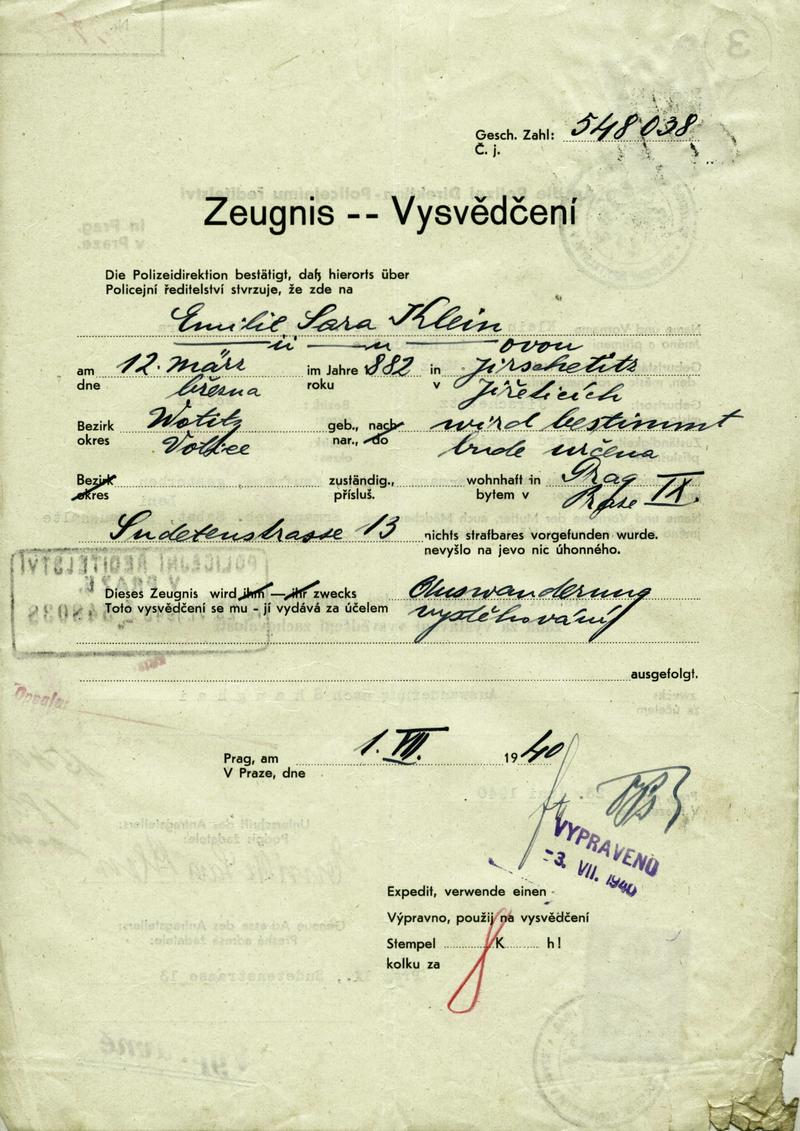 Gesch. Zahl: 548038
Č. j.
Zeugnis -- Vysvědčení
Die Polizeidirektion bestätigt, daß hierorts über
Policejní ředitelství stvrzuje, že zde na
Emilie Sara Klein
" — " — ovou
am 12. März im Jahre 882 in Jirschetitz
dne března roku v Jiřeticích
Bezirk Wotitz geb., nach wird bestimmt
okres Votice nar., do bude určena
Bezirk zuständig., wohnhaft in Prag
okres přísluš. bytem v Praze IX.
Sudetenstrasse 13 nichts strafbares vorgefunden wurde.
nevyšlo na jevo nic úhonného.
Dieses Zeugnis wird ihm — ihr zwecks Auswanderung
Toto vysvědčení se mu - jí vydává za účelem vystěhování
ausgefolgt.
Prag, am 1. VII. 1940
V Praze, dne
VYPRAVENO
-3. VII. 1940
Expedit, verwende einen
Výpravno, použij na vysvědčení
Stempel 8 K h!
kolku za